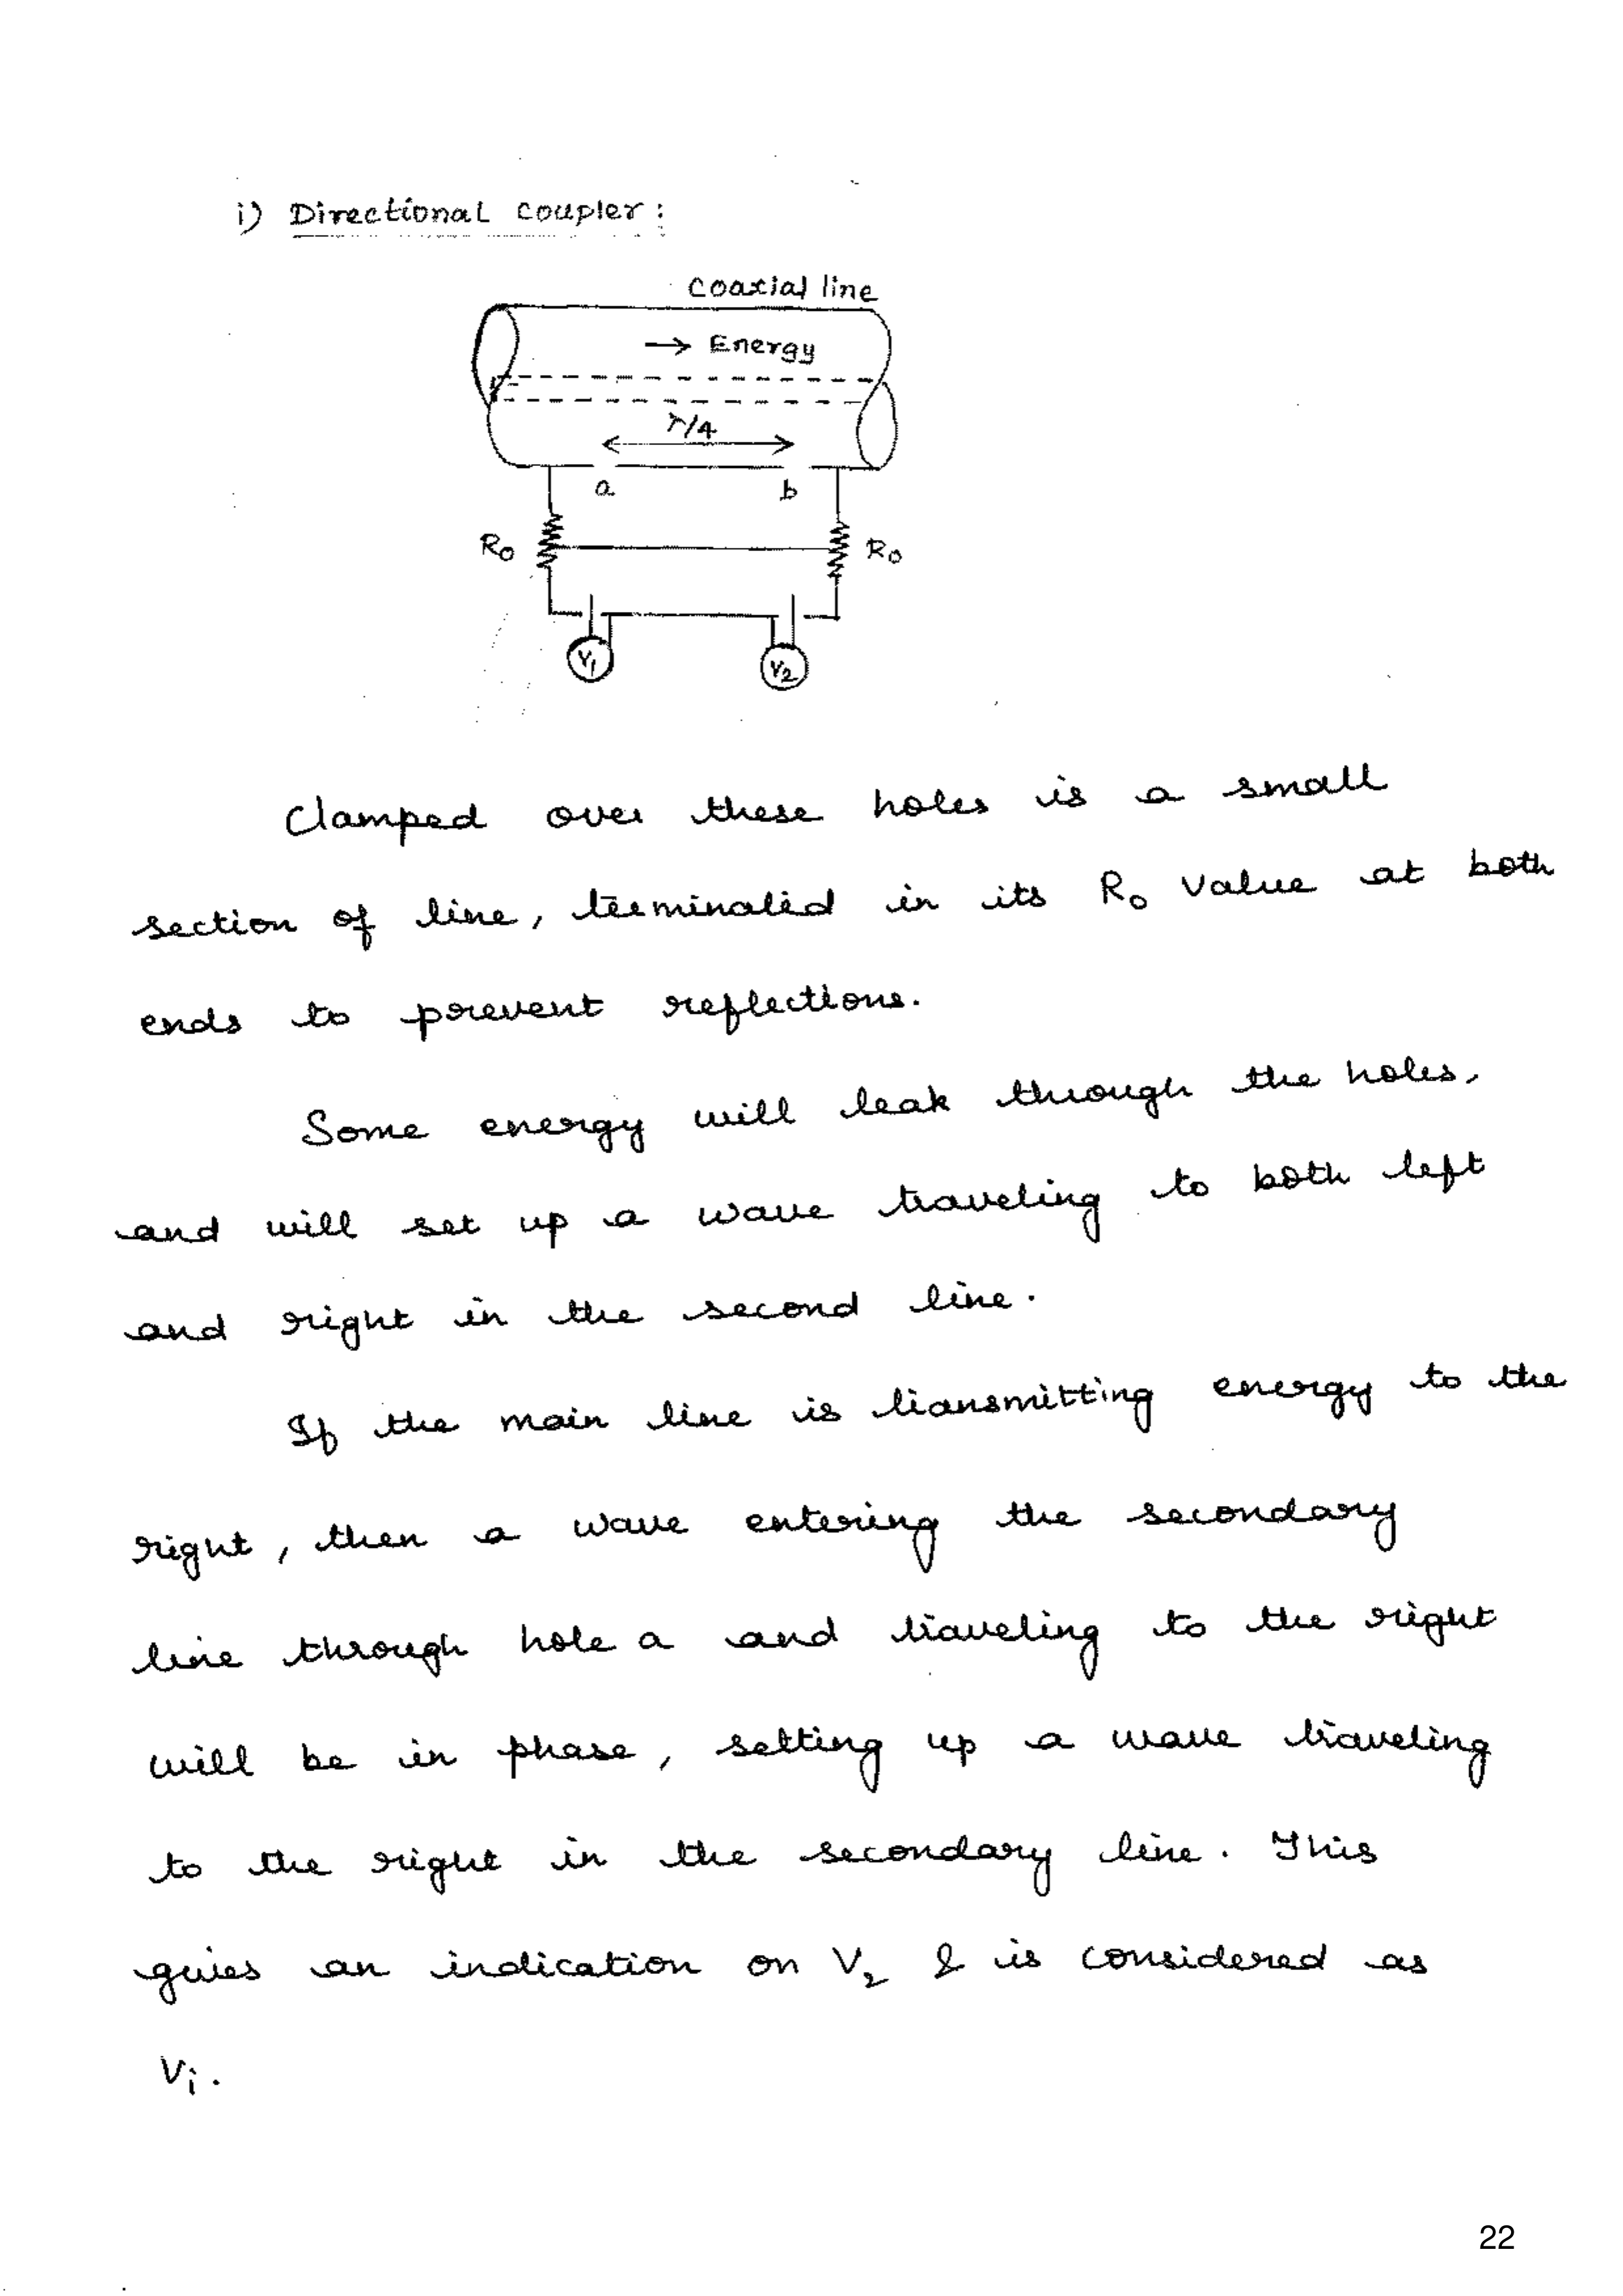 i) Directional coupler :
coaxial line
→ Energy
λ/4
a b
R₀ R₀
V₁ V₂
Clamped over these holes is a small
section of line, terminated in its R₀ value at both
ends to prevent reflections.
Some energy will leak through the holes,
and will set up a wave traveling to both left
and right in the second line.
If the main line is transmitting energy to the
right, then a wave entering the secondary
line through hole a and traveling to the right
will be in phase, setting up a wave traveling
to the right in the secondary line. This
gives an indication on V₂ & is considered as
Vᵢ.
22